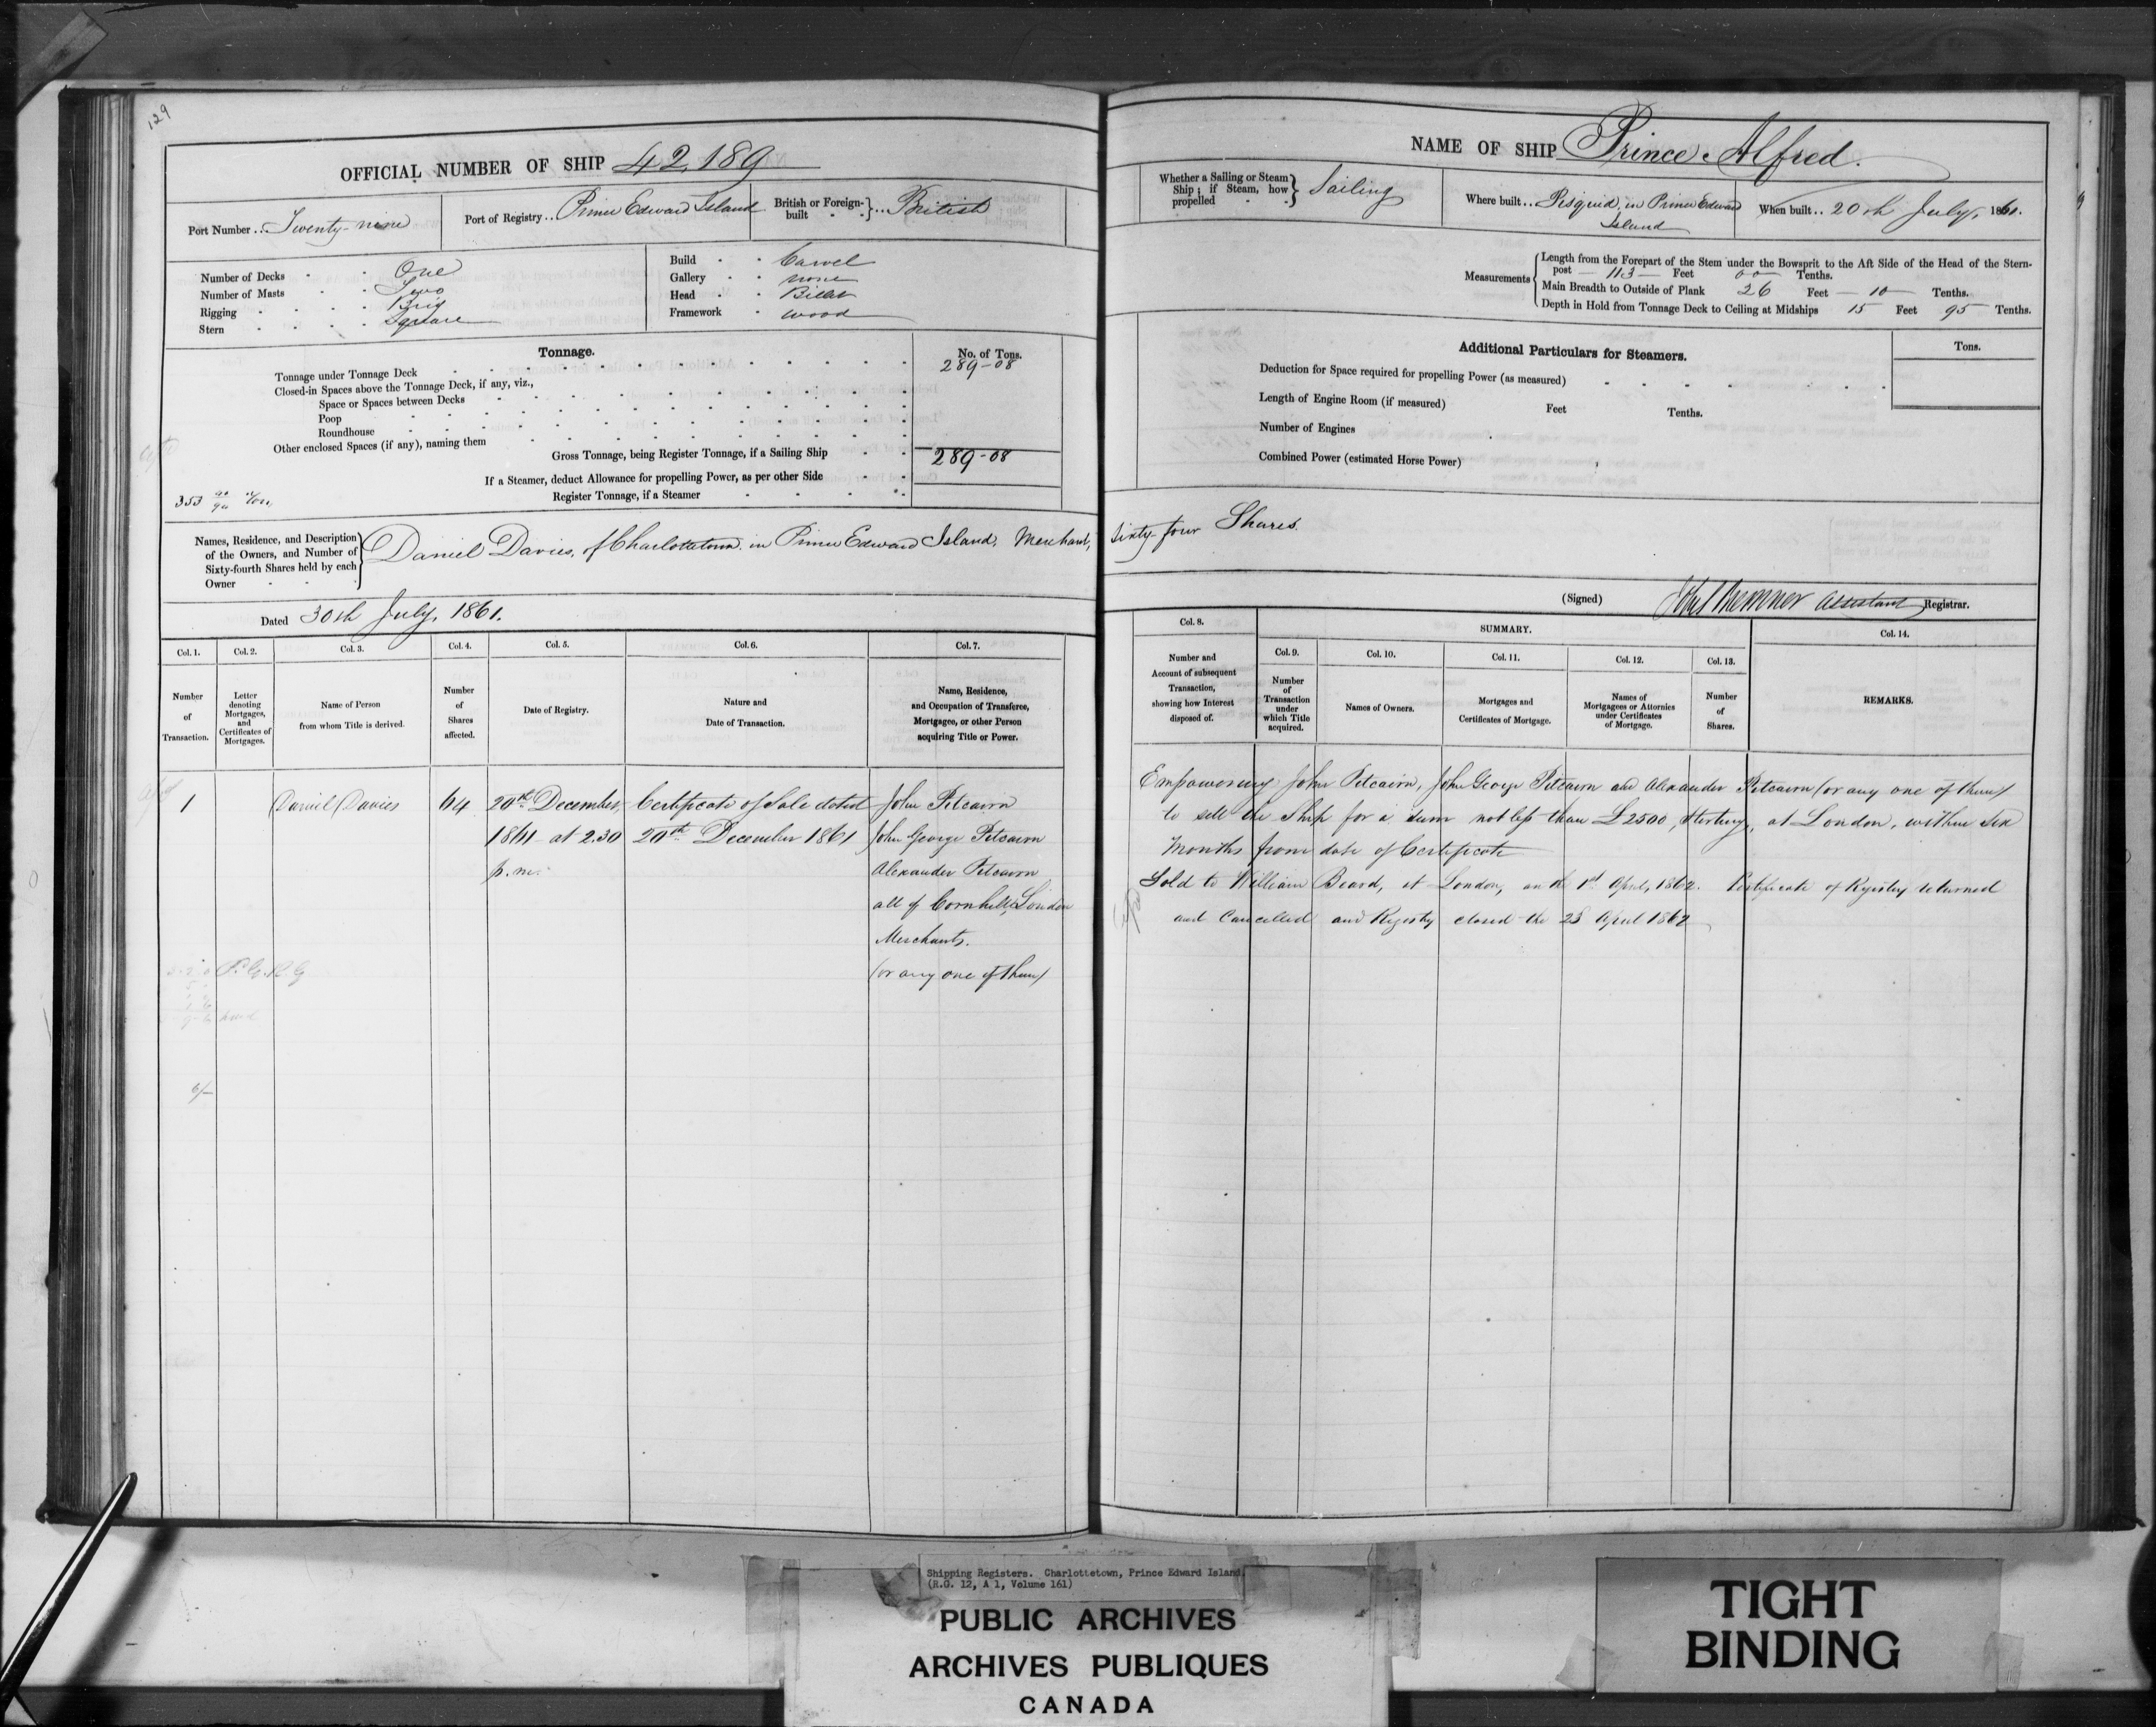 129
OFFICIAL NUMBER OF SHIP 42,189
Port Number .. Twenty-nine
Port of Registry .. Prince Edward Island
British or Foreign-built } .. British
Number of Decks - One
Number of Masts - Two
Rigging - Brig
Stern - Square
Build - Carvel
Gallery - none
Head - Billet
Framework - wood
Tonnage.
No. of Tons.
Tonnage under Tonnage Deck 289-08
Closed-in Spaces above the Tonnage Deck, if any, viz.,
Space or Spaces between Decks
Poop
Roundhouse
Other enclosed Spaces (if any), naming them
Gross Tonnage, being Register Tonnage, if a Sailing Ship 289-08
If a Steamer, deduct Allowance for propelling Power, as per other Side
Register Tonnage, if a Steamer
353
Names, Residence, and Description
of the Owners, and Number of
Sixty-fourth Shares held by each
Owner
Daniel Davies, of Charlottetown in Prince Edward Island, Merchant,
Dated 30th July, 1861.
Col. 1. Col. 2. Col. 3. Col. 4. Col. 5. Col. 6. Col. 7.
Number of Transaction.
Letter denoting Mortgages, and Certificates of Mortgages.
Name of Person from whom Title is derived.
Number of Shares affected.
Date of Registry.
Nature and Date of Transaction.
Name, Residence, and Occupation of Transferee, Mortgagee, or other Person acquiring Title or Power.
1 Daniel Davies 64 20th December, Certificate of Sale dated John Pitcairn
1861 at 2.30 20th December 1861 John George Pitcairn
p.m. Alexander Pitcairn
all of Cornhill, London
Merchants.
(or any one of them)
NAME OF SHIP Prince Alfred.
Whether a Sailing or Steam Ship; if Steam, how propelled } Sailing
Where built .. Pisquid, in Prince Edward
Island
When built .. 20th July, 1861.
Measurements
Length from the Forepart of the Stem under the Bowsprit to the Aft Side of the Head of the Stern-
post — 113 — Feet 00 Tenths.
Main Breadth to Outside of Plank 26 Feet — 10 — Tenths.
Depth in Hold from Tonnage Deck to Ceiling at Midships 15 Feet 95 Tenths.
Additional Particulars for Steamers.
Tons.
Deduction for Space required for propelling Power (as measured)
Length of Engine Room (if measured) Feet Tenths.
Number of Engines
Combined Power (estimated Horse Power)
Sixty-four Shares.
(Signed) Assistant Registrar.
Col. 8. SUMMARY. Col. 14.
Col. 9. Col. 10. Col. 11. Col. 12. Col. 13.
Number and Account of subsequent Transaction, showing how Interest disposed of.
Number of Transaction under which Title acquired.
Names of Owners.
Mortgages and Certificates of Mortgage.
Names of Mortgagees or Attornies under Certificates of Mortgage.
Number of Shares.
REMARKS.
Empowering John Pitcairn, John George Pitcairn and Alexander Pitcairn (or any one of them)
to sell the Ship for a sum not less than £2500, Sterling, at London, within Six
Months from date of Certificate
Sold to William Beard, at London, on the 1st April, 1862. Certificate of Registry returned
and Cancelled and Registry closed the 23 April 1862
Shipping Registers. Charlottetown, Prince Edward Island.
(R.G. 12, A 1, Volume 161)
PUBLIC ARCHIVES
ARCHIVES PUBLIQUES
CANADA
TIGHT
BINDING